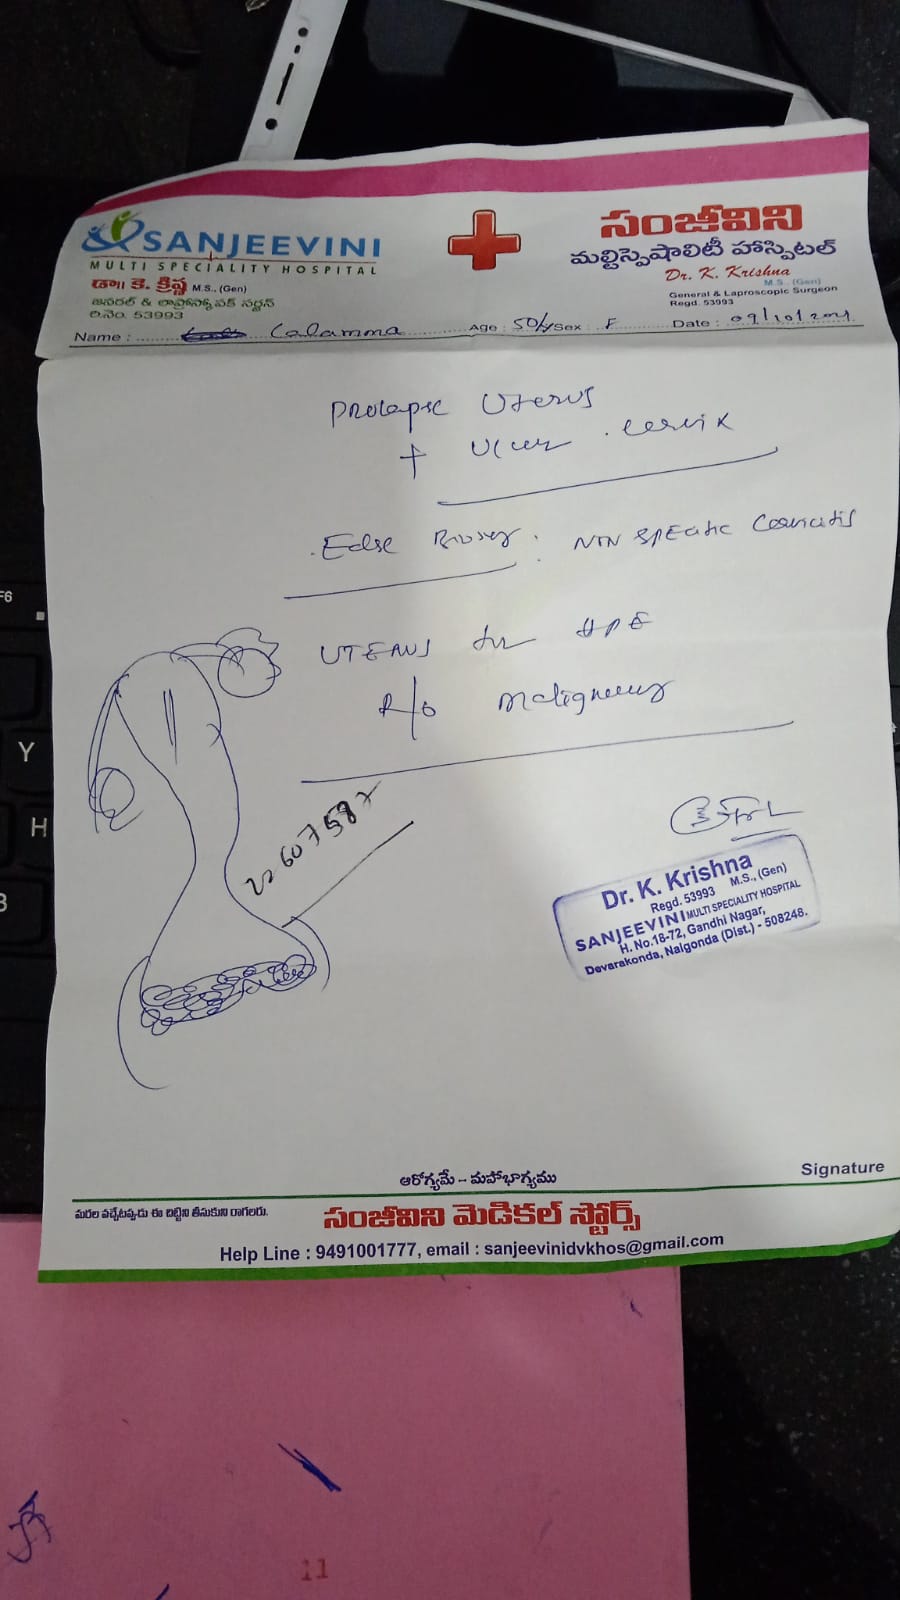 SANJEEVINI
MULTI SPECIALITY HOSPITAL
డా॥ కె. క్రిష్ణ M.S., (Gen)
జనరల్ & లాప్రోస్కోపిక్ సర్జన్
రి.నెం. 53993
సంజీవిని
మల్టిస్పెషాలిటీ హాస్పిటల్
Dr. K. Krishna
M.S., (Gen)
General & Laproscopic Surgeon
Regd. 53993
Name : Calamma Age : 50/y Sex : F Date : 09/10/2021
Prolapse Uterus
+ Ulcer cervix
Edge Biopsy : NON SPECIFIC Cervicitis
UTERUS for HPE
R/o malignancy
22607587
Dr. K. Krishna
Regd. 53993 M.S., (Gen)
SANJEEVINI MULTI SPECIALITY HOSPITAL
H. No.18-72, Gandhi Nagar,
Devarakonda, Nalgonda (Dist.) - 508248.
Signature
ఆరోగ్యమే - మహాభాగ్యము
మరల వచ్చేటప్పుడు ఈ చిట్టిని తీసుకుని రాగలరు.
సంజీవిని మెడికల్ స్టోర్స్
Help Line : 9491001777, email : sanjeevinidvkhos@gmail.com
11
F6
Y
H